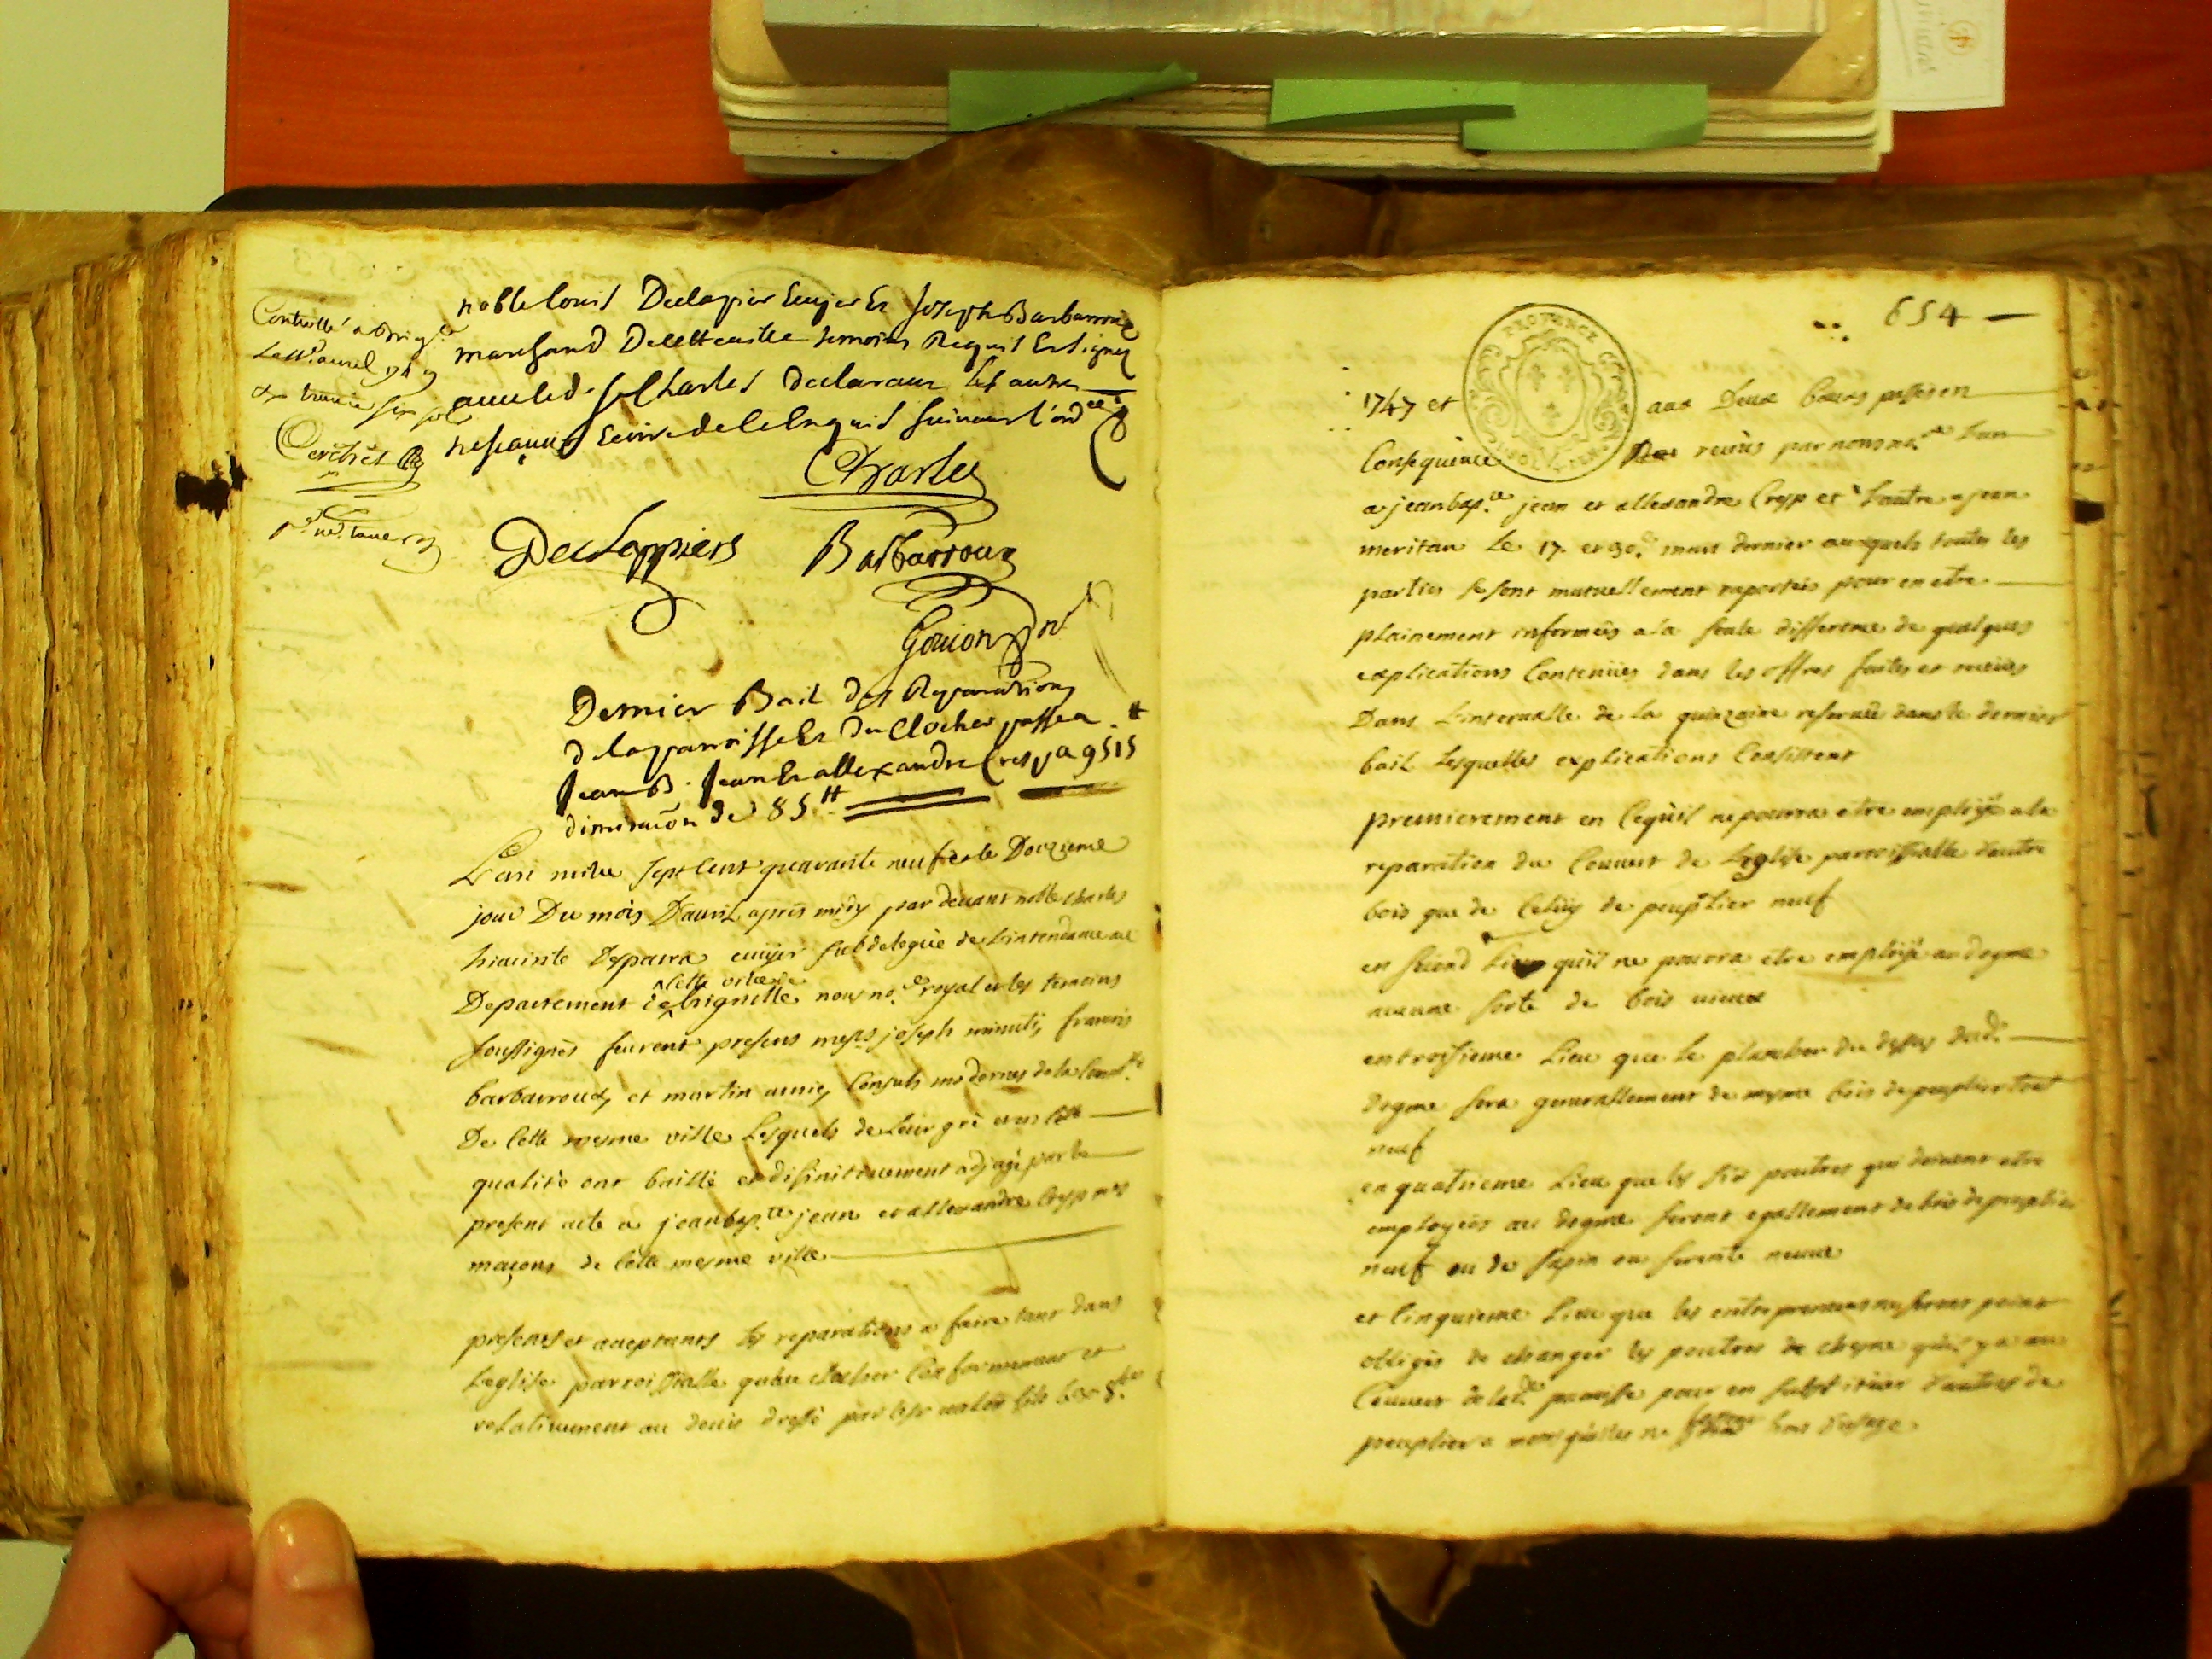 noble louis Declapier Ecuyer Et Joseph Barbarroux
marchand De cette ville temoins Requis Et signes
avec led. sr Charles declarant les autres
ne scavoir Ecrire de ce Enquis suivant l'ord.ce
Controllé a Brig.le
avril 1749
six sols
Charles
Declappiers Barbarroux
Goujon
Dernier Bail des Reparations
de la parroisse Et du Clocher passé a
Jean B. Jean Et allexandre Cresp a 9515 ++
diminuon de 85 ++
L'an mille sept cent quarante neuf et le Douzieme
jour Du mois D'avril apres midy par devant noble charles
hiacinte Desparra ecuyer subdelegué de L'intendance au
cette ville de
Departement de brignolle nous no.re royal et les temoins
soussignés feurent presens messrs joseph minuti, francois
barbarroux, et martin amic, Consuls modernes de la Commté
De Cette mesme ville Lesquels de Leur gré en cette
qualité ont baillé et difinitivement adjugé par le
present acte a jean bap.te jean et allexandre Cresp mes
maçons de Cette mesme ville
presents et acceptants les reparations a faire tant dans
Leglise parroissialle qu'au clocher Conformement et
relativement au devis dressé par le sr vallon le 8.bre
654
PROVENCE
1747 et aux Deux baux passés en
Consequence reçus par nous no.re L'un
a jean bap.te jean et allexandre Cresp et L'autre a jean
meritan Le 17. et 30.e mars dernier auxquels toutes les
parties se sont mutuellement raportées pour en etre
plainement informées a la seule difference de quelques
explications Contenües dans les offres faites et recües
Dans L'intervalle de la quinzaine reservée dans le dernier
bail Lesquelles explications Consistent
premierement en Ce qu'il ne pourra etre employé a la
reparation du Couvert de Leglise parroissialle d'autre
bois que de Celuy de peuplier neuf
en second Lieu qu'il ne pourra etre employé au dogme
aucune sorte de bois vieux
en troisieme Lieu que le plancher du dessus dud.
dogme sera generallement de mesme bois de peuplier tout
neuf
en quatrieme Lieu que les six poutres qui doivent etre
employées au dogme seront egallement de bois de peuplier
neuf ou de sapin ou serente neuve
et Cinquieme Lieu que les entrepreneurs ne seront point
obligés de changer les poutres de chesne qu'il y a au
Couvert de lad.e paroisse pour en substituer d'autres de
peuplier a moins qu'elles ne hors d'usage